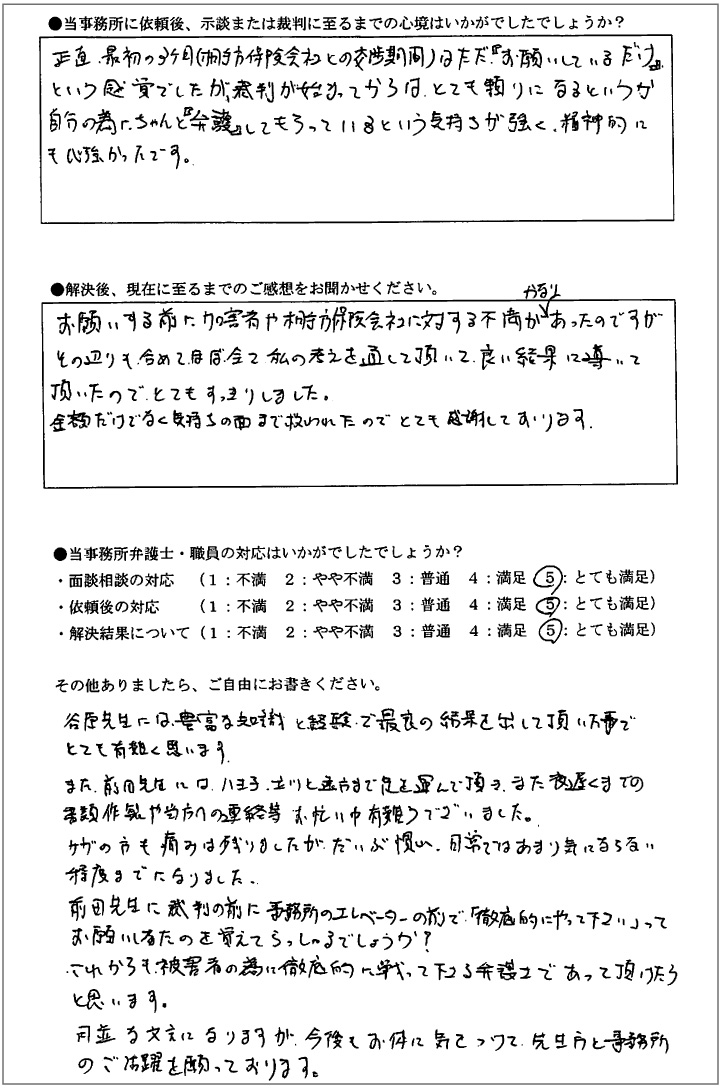 ●当事務所に依頼後、示談または裁判に至るまでの心境はいかがでしたでしょうか？
正直、最初の3ヶ月(相手方保険会社との交渉期間)はただ『お願いしているだけ』
という感覚でしたが、裁判が始まってからは、とても頼りになるというか
自分の為に、ちゃんと『弁護』してもらっているという気持ちが強く、精神的に
も心強かったです。
●解決後、現在に至るまでのご感想をお聞かせください。
かなり
お願いする前に加害者や相手方保険会社に対する不満があったのですが
その辺りも含めて、ほぼ全て私の考えを通して頂いて、良い結果に導いて
頂いたので、とてもすっきりしました。
金額だけでなく気持ちの面まで救われたのでとても感謝しております。
●当事務所弁護士・職員の対応はいかがでしたでしょうか？
・面談相談の対応　（１：不満　２：やや不満　３：普通　４：満足　５：とても満足）
・依頼後の対応　　（１：不満　２：やや不満　３：普通　４：満足　５：とても満足）
・解決結果について（１：不満　２：やや不満　３：普通　４：満足　５：とても満足）
その他ありましたら、ご自由にお書きください。
谷原先生には、豊富な知識と経験で最良の結果を出して頂いた事で
とても有難く思います。
また、前田先生には、八王子、立川と遠方まで足を運んで頂き、また夜遅くまでの
書類作製や当方への連絡等お忙い中有難うございました。
ケガの方も痛みは残りましたが、だいぶ慣れ、日常ではあまり気にならない
程度までになりました。
前田先生に裁判の前に事務所のエレベーターの前で、「徹底的にやって下さい」って
お願いしたのを覚えてらっしゃるでしょうか？
これからも、被害者の為に徹底的に戦って下さる弁護士であって頂けたら
と思います。
な文言になりますが、今後もお体に気をつけて、先生方と事務所
のご活躍を願っております。